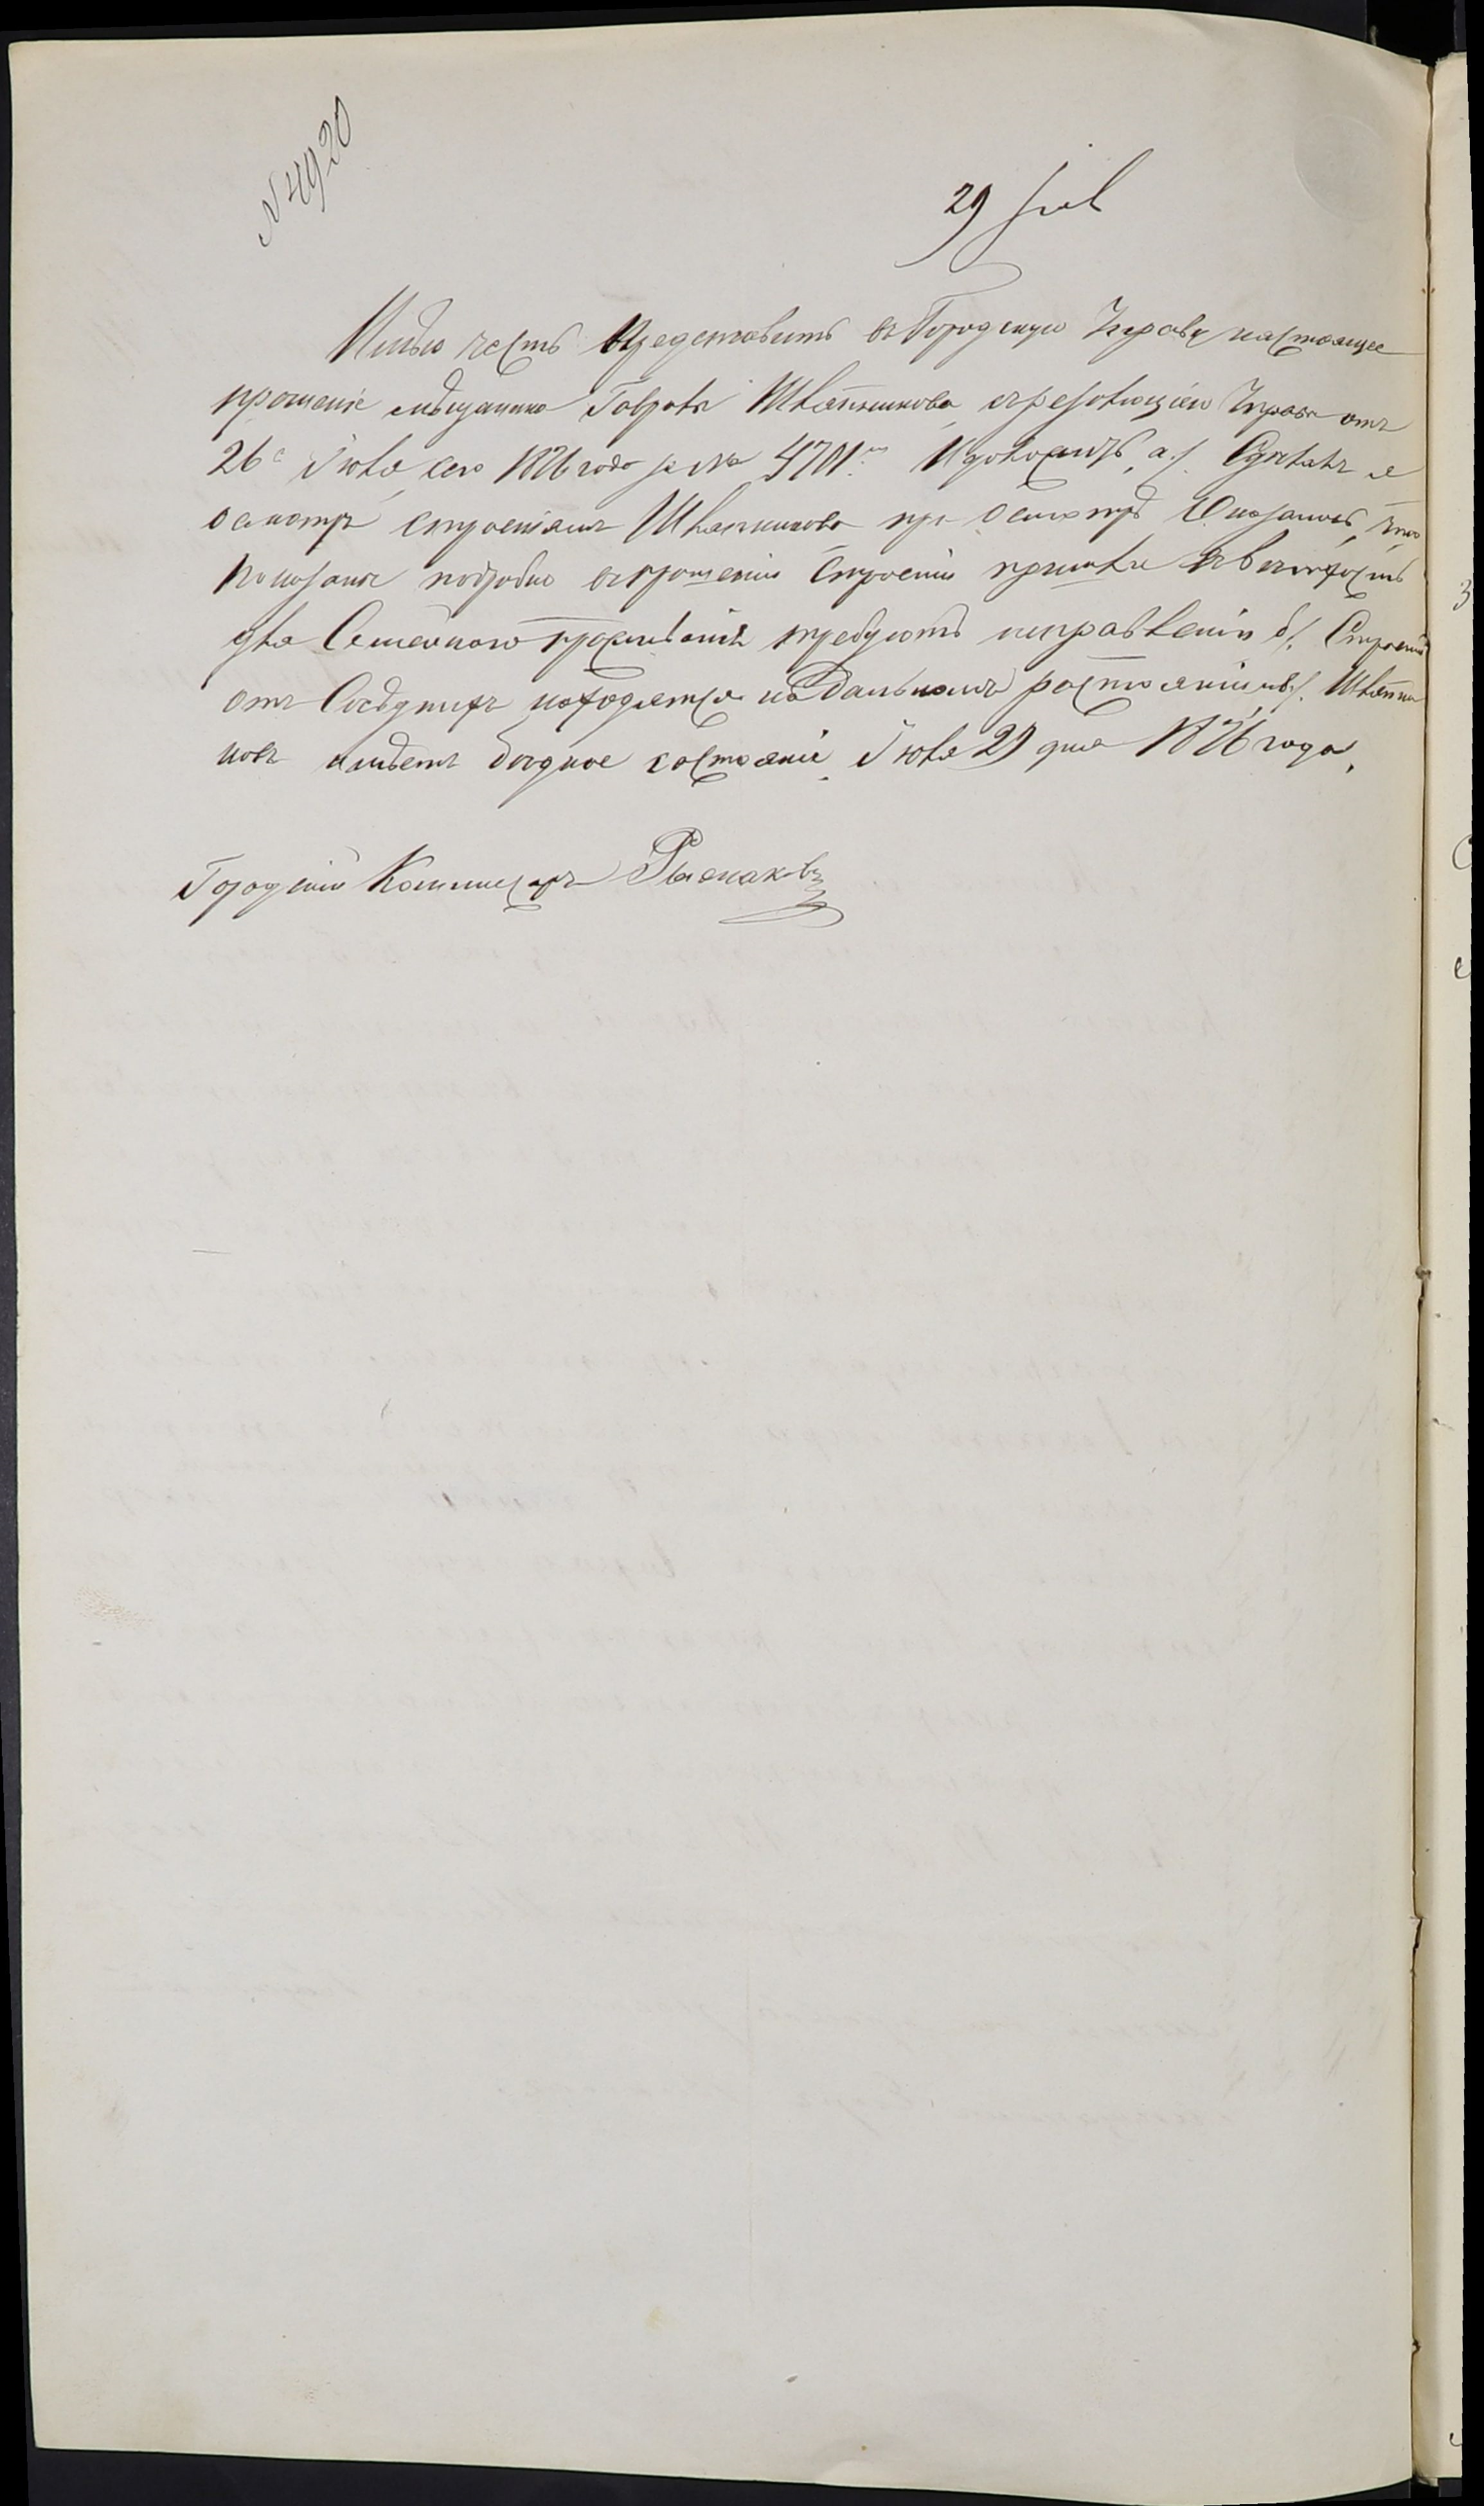 N 4920
29 Іюл
Имѣю честь представить въ Городскую Управу настоящее
прошеніе мѣщанина Гаврилы Шляпникова, съ резолюціею Управы отъ
26 Іюля сего 1876 года за № 4701. И доложить, а/. Сдѣлалъ я
осмотръ строеніямъ Шляпникова при осмотрѣ Оказалось, что
показаны подробно въ прошеніи Строенія пришли въ ветхость
для Семейнаго проживанія требуютъ исправленія б/. Строенія
отъ Сосѣднихъ находятся на Дальномъ растояніи и в/. Шляпни
ковъ имѣетъ бѣдное состояніе. Іюля 29 дня 1876 года.
Городской Коммисаръ